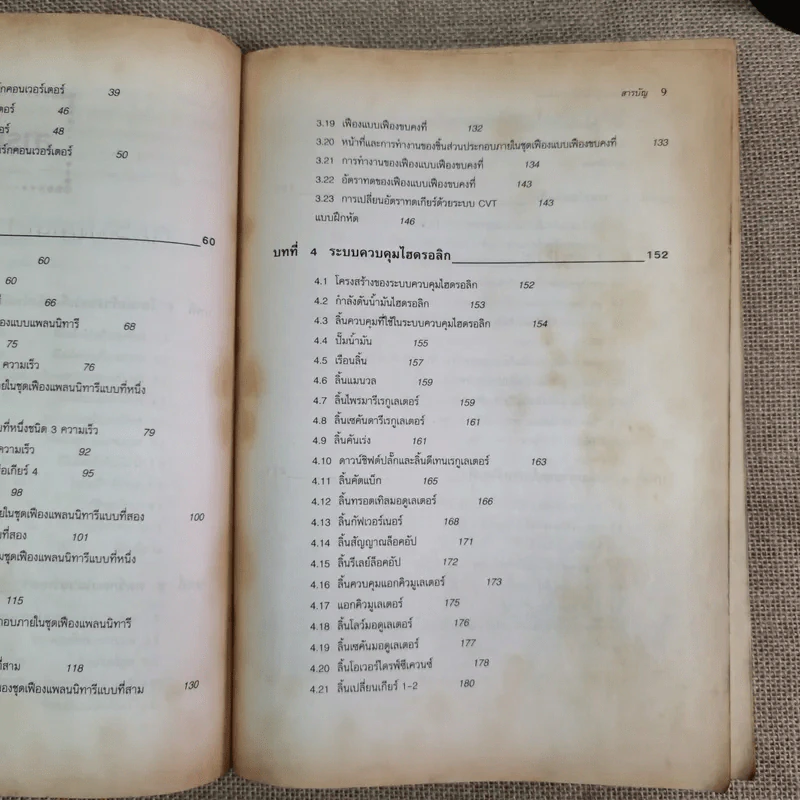 กคอนเวอร์เตอร์ 39
ตอร์ 46
อร์ 48
ร์กคอนเวอร์เตอร์ 50
60
60
60
66
องแบบแพลนนิทารี 68
75
ความเร็ว 76
ายในชุดเฟืองแพลนนิทารีแบบที่หนึ่ง
บที่หนึ่งชนิด 3 ความเร็ว 79
ความเร็ว 92
อเกียร์ 4 95
98
ายในชุดเฟืองแพลนนิทารีแบบที่สอง 100
ที่สอง 101
มชุดเฟืองแพลนนิทารีแบบที่หนึ่ง
115
กอบภายในชุดเฟืองแพลนนิทารี
ที่สาม 118
ของชุดเฟืองแพลนนิทารีแบบที่สาม 130
สารบัญ 9
3.19 เฟืองแบบเฟืองขบคงที่ 132
3.20 หน้าที่และการทำงานของชิ้นส่วนประกอบภายในชุดเฟืองแบบเฟืองขบคงที่ 133
3.21 การทำงานของเฟืองแบบเฟืองขบคงที่ 134
3.22 อัตราทดของเฟืองแบบเฟืองขบคงที่ 143
3.23 การเปลี่ยนอัตราทดเกียร์ด้วยระบบ CVT 143
แบบฝึกหัด 146
บทที่ 4 ระบบควบคุมไฮดรอลิก 152
4.1 โครงสร้างของระบบควบคุมไฮดรอลิก 152
4.2 กำลังดันน้ำมันไฮดรอลิก 153
4.3 ลิ้นควบคุมที่ใช้ในระบบควบคุมไฮดรอลิก 154
4.4 ปั๊มน้ำมัน 155
4.5 เรือนลิ้น 157
4.6 ลิ้นแมนวล 159
4.7 ลิ้นไพรมารีเรกูเลเตอร์ 159
4.8 ลิ้นเซคันดารีเรกูเลเตอร์ 161
4.9 ลิ้นคันเร่ง 161
4.10 ดาวน์ชิฟต์ปลั๊กและลิ้นดีเทนเรกูเลเตอร์ 163
4.11 ลิ้นคัตแบ็ก 165
4.12 ลิ้นทรอตเทิลมอดูเลเตอร์ 166
4.13 ลิ้นกัฟเวอร์เนอร์ 168
4.14 ลิ้นสัญญาณล็อคอัป 171
4.15 ลิ้นรีเลย์ล็อคอัป 172
4.16 ลิ้นควบคุมแอกคิวมูเลเตอร์ 173
4.17 แอกคิวมูเลเตอร์ 175
4.18 ลิ้นโลว์มอดูเลเตอร์ 176
4.19 ลิ้นเซคันมอดูเลเตอร์ 177
4.20 ลิ้นโอเวอร์ไดรฟ์ซีเควนซ์ 178
4.21 ลิ้นเปลี่ยนเกียร์ 1-2 180